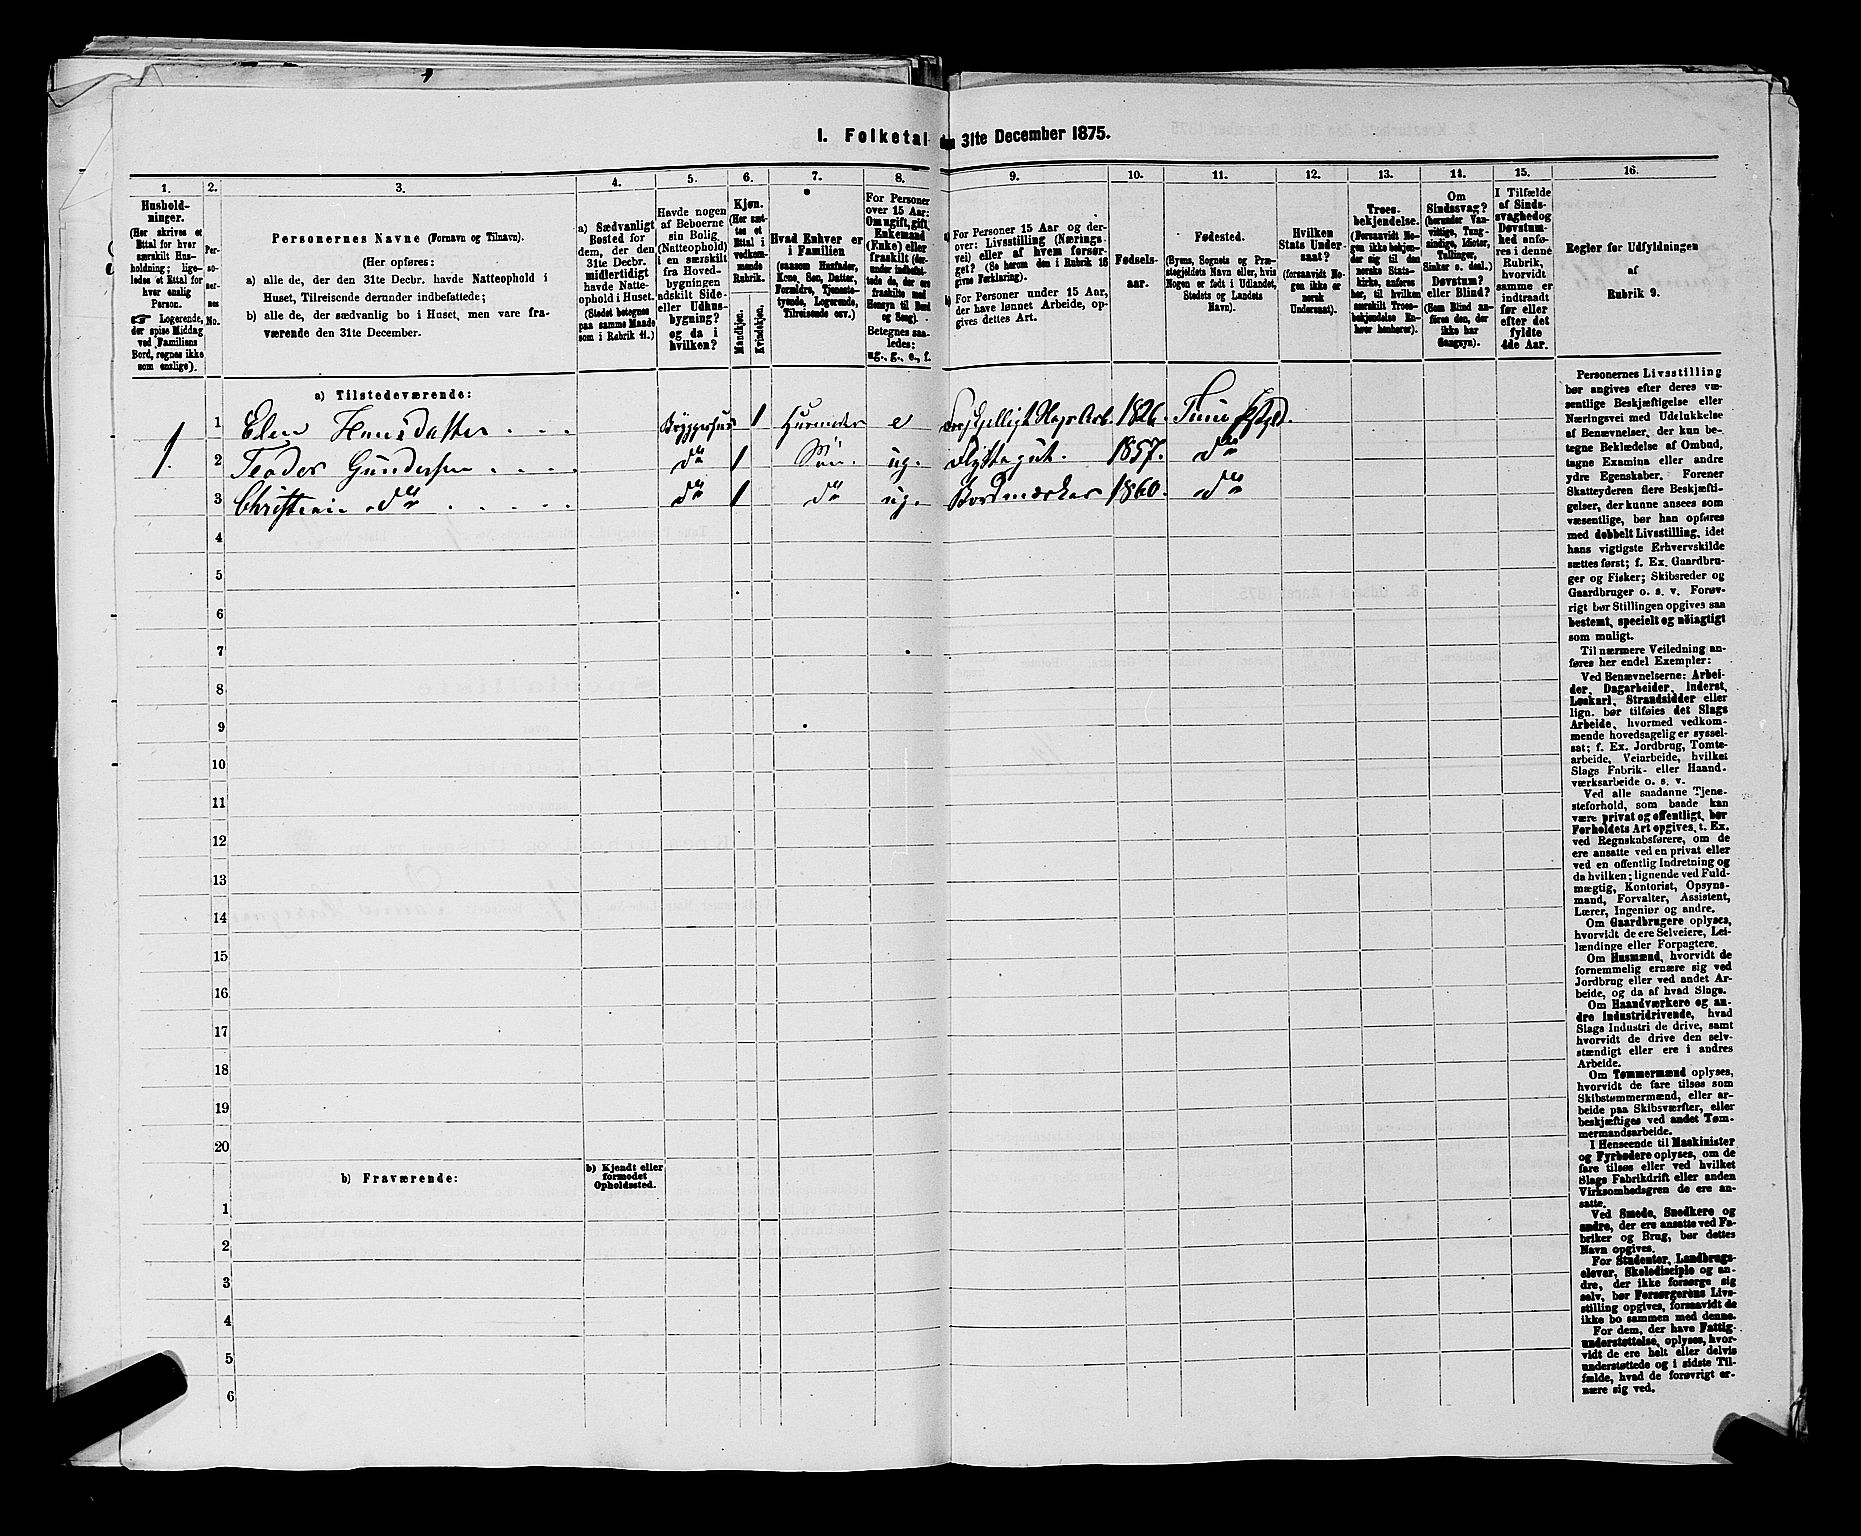 I. Folketal den 31te December 1875.
1.
2.
3.
4.
5.
6.
7.
8.
9.
10.
11.
12.
13.
14.
15.
16.
Hushold-
ninger.
(Her skrives et
Ettal for hver
særskilt Hus-
holdning; lige-
ledes et Ettal for
hver enslig
Person.
☞ Logerende,
der spise Middag
ved Familiens
Bord, regnes ikke
som enslige).
Per-
so-
ner-
nes
No.
Personernes Navne (Fornavn og Tilnavn).
(Her opføres:
a) alle de, der den 31te Decbr. havde Natteophold i
Huset, Tilreisende derunder indbefattede;
b) alle de, der sædvanlig bo i Huset, men vare fra-
værende den 31te December.
a) Sædvanligt
Bosted for
dem, der den
31te Decbr.
midlertidigt
havde Natte-
ophold i Huset.
(Stedet betegnes
paa samme Maade
som i Rubrik 11.)
Havde nogen
af Beboerne
sin Bolig
(Natteophold)
i en særskilt
fra Hoved-
bygningen
adskilt Side-
eller Udhus-
bygning?
og da i
hvilken?
Kjøn.
(Her sæt-
tes et
Ettal i
vedkom-
mende
Rubrik.
Mandkjøn.
Kvindekjøn.
Hvad Enhver er
i Familien
(saasom Husfader,
Kone, Søn, Datter,
Forældre, Tjeneste-
tyende, Logerende,
Tilreisende osv.)
For Personer
over 15 Aar:
Om ugift, gift,
Enkemand
(Enke) eller
fraskilt (der-
under indbefat-
tede de, der ere
fraskilte med
Hensyn til Bord
og Seng).
Betegnes saa-
ledes:
ug., g., e., f.
a) For Personer 15 Aar og der-
over: Livsstilling (Nærings-
vei) eller af hvem forsør-
get? (Se herom den i Rubrik 16
givne Forklaring).
b) For Personer under 15 Aar,
der have lønnet Arbeide, op-
gives dettes Art.
Fødsels-
aar.
Fødested.
(Byens, Sognets og Præ-
stegjeldets Navn eller, hvis
Nogen er født i Udlandet,
Stedets og Landets
Navn).
Hvilken
Stats Under-
saat?
(forsaavidt No-
gen ikke er
norsk
Undersaat).
Troes-
bekjendelse.
(Forsaavidt No-
gen ikke bekjen-
der sig til den
norske Stats-
kirke, anføres
her, til hvilken
særskilt Troes-
bekjendelse En-
hver henhører).
Om
Sindssvag?
(herunder Van-
vittige, Tung-
sindige, Idioter,
Tullinger,
Sinker o. desl.)
Døvstum?
eller Blind?
(Som Blind an-
føres den, der
ikke har
Gangsyn).
I Tilfælde
af Sinds-
svaghed og
Døvstum-
hed anfø-
res i denne
Rubrik,
hvorvidt
samme er
indtraadt
før eller
efter det
fyldte
4de Aar.
Regler for Udfyldningen
af
Rubrik 9.
a) Tilstedeværende:
1 Elen Hansdatter Bryggerhus 1 Husmoder e 1826. Tune
1. 2 Gundersen do 1 Søn. ug. Flyttegut. 1857. do
3 do do 1 do ug. Bordmærker 1860. do
4
5
6
7
8
9
10
11
12
13
14
15
16
17
18
19
20
b) Fraværende:
b) Kjendt eller
formodet
Opholdssted.
1
2
3
4
5
6
Personernes Livsstilling
bør angives efter deres væ-
sentlige Beskjæftigelse eller
Næringsvei med Udelukkelse
af Benævnelser, der kun be-
tegne Beklædelse af Ombud,
tagne Examina eller andre
ydre Egenskaber. Forener
Skatteyderen flere Beskjæfti-
gelser, der kunne ansees som
væsentlige, bør han opføres
med dobbelt Livsstilling, idet
hans vigtigste Erhvervskilde
sættes først; f. Ex. Gaardbru-
ger og Fisker; Skibsreder og
Gaardbruger o. s. v. Forøv-
rigt bør Stillingen opgives saa
bestemt, specielt og nøiagtigt
som muligt.
Til nærmere Veiledning an-
føres her endel Exempler:
Ved Benævnelserne: Arbei-
der, Dagarbeider, Inderst,
Løskarl, Strandsidder eller
lign. bør tilføies det Slags
Arbeide, hvormed vedkom-
mende hovedsagelig er syssel-
sat; f. Ex. Jordbrug, Tomte-
arbeide, Veiarbeide, hvilket
Slags Fabrik- eller Haand-
værksarbeide o. s. v.
Ved alle saadanne Tjene-
steforhold, som baade kan
være privat og offentligt, bør
Forholdets Art opgives, t. Ex.
ved Regnskabsførere, om de
ere ansatte ved en privat eller
ved en offentlig Indretning og
da hvilken; lignende ved Fuld-
mægtig, Kontorist, Opsyns-
mand, Forvalter, Assistent,
Lærer, Ingeniør og andre.
Om Gaardbrugere oplyses,
hvorvidt de ere Selveiere, Lei-
lændinge eller Forpagtere.
Om Husmænd, hvorvidt de
fornemmelig ernære sig ved
Jordbrug eller ved andet Ar-
beide, og da af hvad Slags.
Om Haandværkere og an-
dre Industridrivende, hvad
Slags Industri de drive, samt
hvorvidt de drive den selv-
stændigt eller ere i andres
Arbeide.
Om Tømmermænd oplyses,
hvorvidt de fare tilsøs som
Skibstømmermænd, eller ar-
beide paa Skibsværfter, eller
beskjæftiges ved andet Tøm-
mermandsarbeide.
I Henseende til Maskinister
og Fyrbødere oplyses, om de
fare tilsøs eller ved hvilket
Slags Fabrikdrift eller anden
Virksomhedsgren de ere an-
satte.
Ved Smede, Snedkere og
andre, der ere ansatte ved Fa-
briker og Brug, bør dettes
Navn opgives.
For Studenter, Landbrugs-
elever, Skoledisciple og an-
dre, der ikke forsørge sig
selv, bør Forsørgerens Livs-
stilling opgives, forsaavidt de
ikke bo sammen med denne.
For dem, der have Fattig-
understøttelse, oplyses, hvor-
vidt de ere helt eller delvis
understøttede og i sidste Til-
fælde, hvad de forøvrigt er-
nære sig ved.